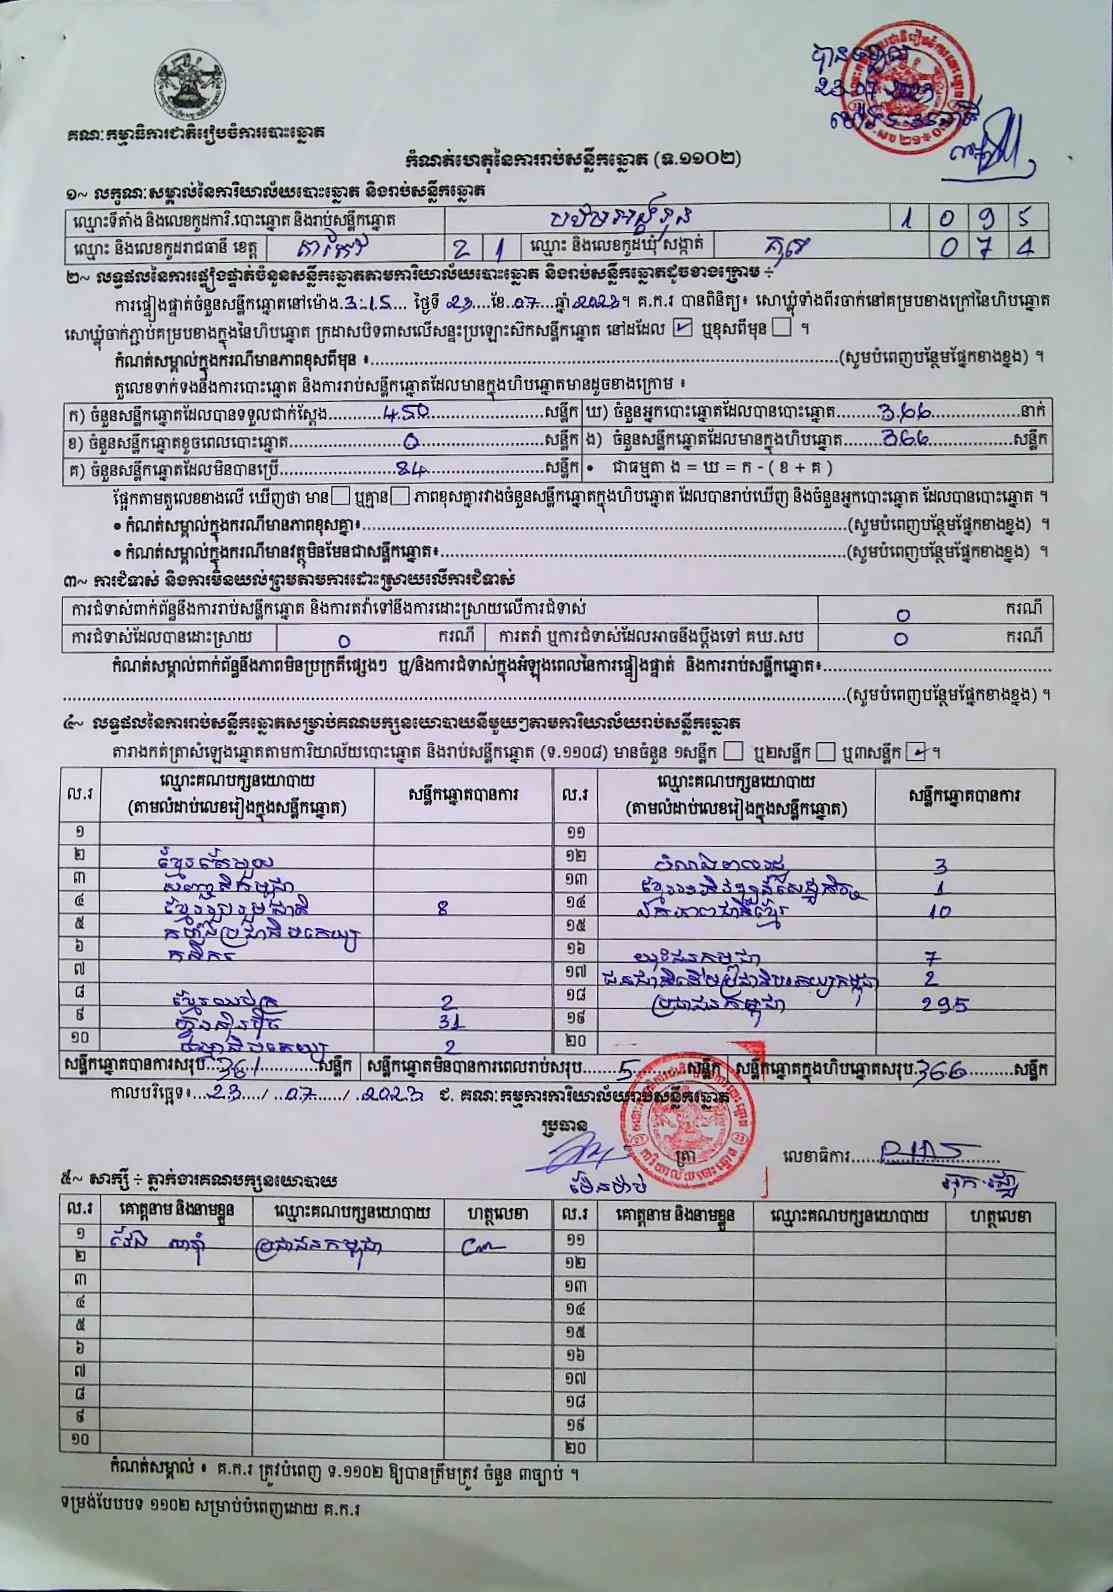 បានទទួល
23-07-2023
គណៈកម្មាធិការជាតិរៀបចំការបោះឆ្នោត
កំណត់ហេតុនៃការរាប់សន្លឹកឆ្នោត (ទ.១១០២)
១~ លក្ខណៈសម្គាល់នៃការិយាល័យបោះឆ្នោត និងរាប់សន្លឹកឆ្នោត
ឈ្មោះទីតាំង និងលេខកូដការិ.បោះឆ្នោត និងរាប់សន្លឹកឆ្នោត 1 0 9 5
ឈ្មោះ និងលេខកូដរាជធានី ខេត្ត តាកែវ 2 1 ឈ្មោះ និងលេខកូដឃុំ សង្កាត់ គុស 0 7 4
២~ លទ្ធផលនៃការផ្ទៀងផ្ទាត់ចំនួនសន្លឹកឆ្នោតតាមការិយាល័យបោះឆ្នោត និងរាប់សន្លឹកឆ្នោតដូចខាងក្រោម ÷
ការផ្ទៀងផ្ទាត់ចំនួនសន្លឹកឆ្នោតនៅម៉ោង.3:15... ថ្ងៃទី 23...ខែ.07...ឆ្នាំ 2023។ គ.ក.រ បានពិនិត្យ៖ សោឃ្លុំទាំងពីរចាក់នៅគម្របខាងក្រៅនៃហិបឆ្នោត
សោឃ្លុំចាក់ភ្ជាប់គម្របខាងក្នុងនៃហិបឆ្នោត ក្រដាសបិទពាសលើសន្ទះប្រឡោះស៊កសន្លឹកឆ្នោត នៅដដែល ☑ ឬខុសពីមុន ☐ ។
កំណត់សម្គាល់ក្នុងករណីមានភាពខុសពីមុន ៖...(សូមបំពេញបន្ថែមផ្នែកខាងខ្នង) ។
តួលេខទាក់ទងនឹងការបោះឆ្នោត និងការរាប់សន្លឹកឆ្នោតដែលមានក្នុងហិបឆ្នោតមានដូចខាងក្រោម ៖
ក) ចំនួនសន្លឹកឆ្នោតដែលបានទទួលជាក់ស្ដែង...450...សន្លឹក ឃ) ចំនួនអ្នកបោះឆ្នោតដែលបានបោះឆ្នោត...366...នាក់
ខ) ចំនួនសន្លឹកឆ្នោតខូចពេលបោះឆ្នោត...0...សន្លឹក ង) ចំនួនសន្លឹកឆ្នោតដែលមានក្នុងហិបឆ្នោត...366...សន្លឹក
គ) ចំនួនសន្លឹកឆ្នោតដែលមិនបានប្រើ...84...សន្លឹក • ជាធម្មតា ង = ឃ = ក - ( ខ + គ )
ផ្អែកតាមតួលេខខាងលើ ឃើញថា មាន☐ ឬគ្មាន☐ ភាពខុសគ្នារវាងចំនួនសន្លឹកឆ្នោតក្នុងហិបឆ្នោត ដែលបានរាប់ឃើញ និងចំនួនអ្នកបោះឆ្នោត ដែលបានបោះឆ្នោត ។
• កំណត់សម្គាល់ក្នុងករណីមានភាពខុសគ្នា៖...(សូមបំពេញបន្ថែមផ្នែកខាងខ្នង) ។
• កំណត់សម្គាល់ក្នុងករណីមានវត្ថុមិនមែនជាសន្លឹកឆ្នោត៖...(សូមបំពេញបន្ថែមផ្នែកខាងខ្នង) ។
៣~ ការជំទាស់ និងការមិនយល់ព្រមតាមការដោះស្រាយលើការជំទាស់
ការជំទាស់ពាក់ព័ន្ធនឹងការរាប់សន្លឹកឆ្នោត និងការតវ៉ាទៅនឹងការដោះស្រាយលើការជំទាស់ 0 ករណី
ការជំទាស់ដែលបានដោះស្រាយ 0 ករណី ការតវ៉ា ឬការជំទាស់ដែលអាចនឹងប្ដឹងទៅ គឃ.សប 0 ករណី
កំណត់សម្គាល់ពាក់ព័ន្ធនឹងភាពមិនប្រក្រតីផ្សេងៗ ឬ/និងការជំទាស់ក្នុងអំឡុងពេលនៃការផ្ទៀងផ្ទាត់ និងការរាប់សន្លឹកឆ្នោត៖...
...(សូមបំពេញបន្ថែមផ្នែកខាងខ្នង) ។
៤~ លទ្ធផលនៃការរាប់សន្លឹកឆ្នោតសម្រាប់គណបក្សនយោបាយនីមួយៗតាមការិយាល័យរាប់សន្លឹកឆ្នោត
តារាងកត់ត្រាសំឡេងឆ្នោតតាមការិយាល័យបោះឆ្នោត និងរាប់សន្លឹកឆ្នោត (ទ.១១០៨) មានចំនួន ១សន្លឹក ☐ ឬ២សន្លឹក ☐ ឬ៣សន្លឹក ☑ ។
ល.រ ឈ្មោះគណបក្សនយោបាយ (តាមលំដាប់លេខរៀងក្នុងសន្លឹកឆ្នោត) សន្លឹកឆ្នោតបានការ ល.រ ឈ្មោះគណបក្សនយោបាយ (តាមលំដាប់លេខរៀងក្នុងសន្លឹកឆ្នោត) សន្លឹកឆ្នោតបានការ
១ ១១
២ ១២ 3
៣ ១៣ 1
៤ ខ្មែររួបរួមជាតិ 8 ១៤ ឯកភាពជាតិខ្មែរ 10
៥ កម្លាំងប្រជាធិបតេយ្យ ១៥
៦ កសិករ ១៦ យុវជនកម្ពុជា 7
៧ ១៧ ជនជាតិដើមប្រជាធិបតេយ្យកម្ពុជា 2
៨ 2 ១៨ ប្រជាជនកម្ពុជា 295
៩ ហ្វ៊ុនស៊ិនប៉ិច 31 ១៩
១០ 2 ២០
សន្លឹកឆ្នោតបានការសរុប...361...សន្លឹក សន្លឹកឆ្នោតមិនបានការពេលរាប់សរុប...5...សន្លឹក សន្លឹកឆ្នោតក្នុងហិបឆ្នោតសរុប.366...សន្លឹក
កាលបរិច្ឆេទ៖...23.../..07.../..2023 ជ. គណៈកម្មការការិយាល័យរាប់សន្លឹកឆ្នោត
ប្រធាន
ត្រា
លេខាធិការ...
៥~ សាក្សី ÷ ភ្នាក់ងារគណបក្សនយោបាយ
ល.រ គោត្តនាម និងនាមខ្លួន ឈ្មោះគណបក្សនយោបាយ ហត្ថលេខា ល.រ គោត្តនាម និងនាមខ្លួន ឈ្មោះគណបក្សនយោបាយ ហត្ថលេខា
១ ប្រជាជនកម្ពុជា ១១
២ ១២
៣ ១៣
៤ ១៤
៥ ១៥
៦ ១៦
៧ ១៧
៨ ១៨
៩ ១៩
១០ ២០
កំណត់សម្គាល់ ៖ គ.ក.រ ត្រូវបំពេញ ទ.១១០២ ឱ្យបានត្រឹមត្រូវ ចំនួន ៣ច្បាប់ ។
ទម្រង់បែបបទ ១១០២ សម្រាប់បំពេញដោយ គ.ក.រ